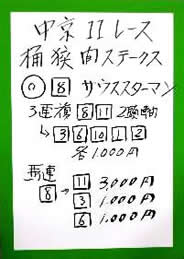 中京11レース
桶狭間ステークス
◎ 8 サウススターマン
3連複 8 11 2頭軸
↳ 3 6 10 1 2
各1,000円
馬連
8 → 11 3,000円
3 1,000円
6 1,000円